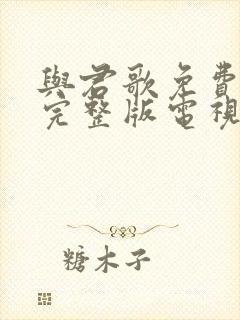 與君歌免費
完整版電視
糖木子